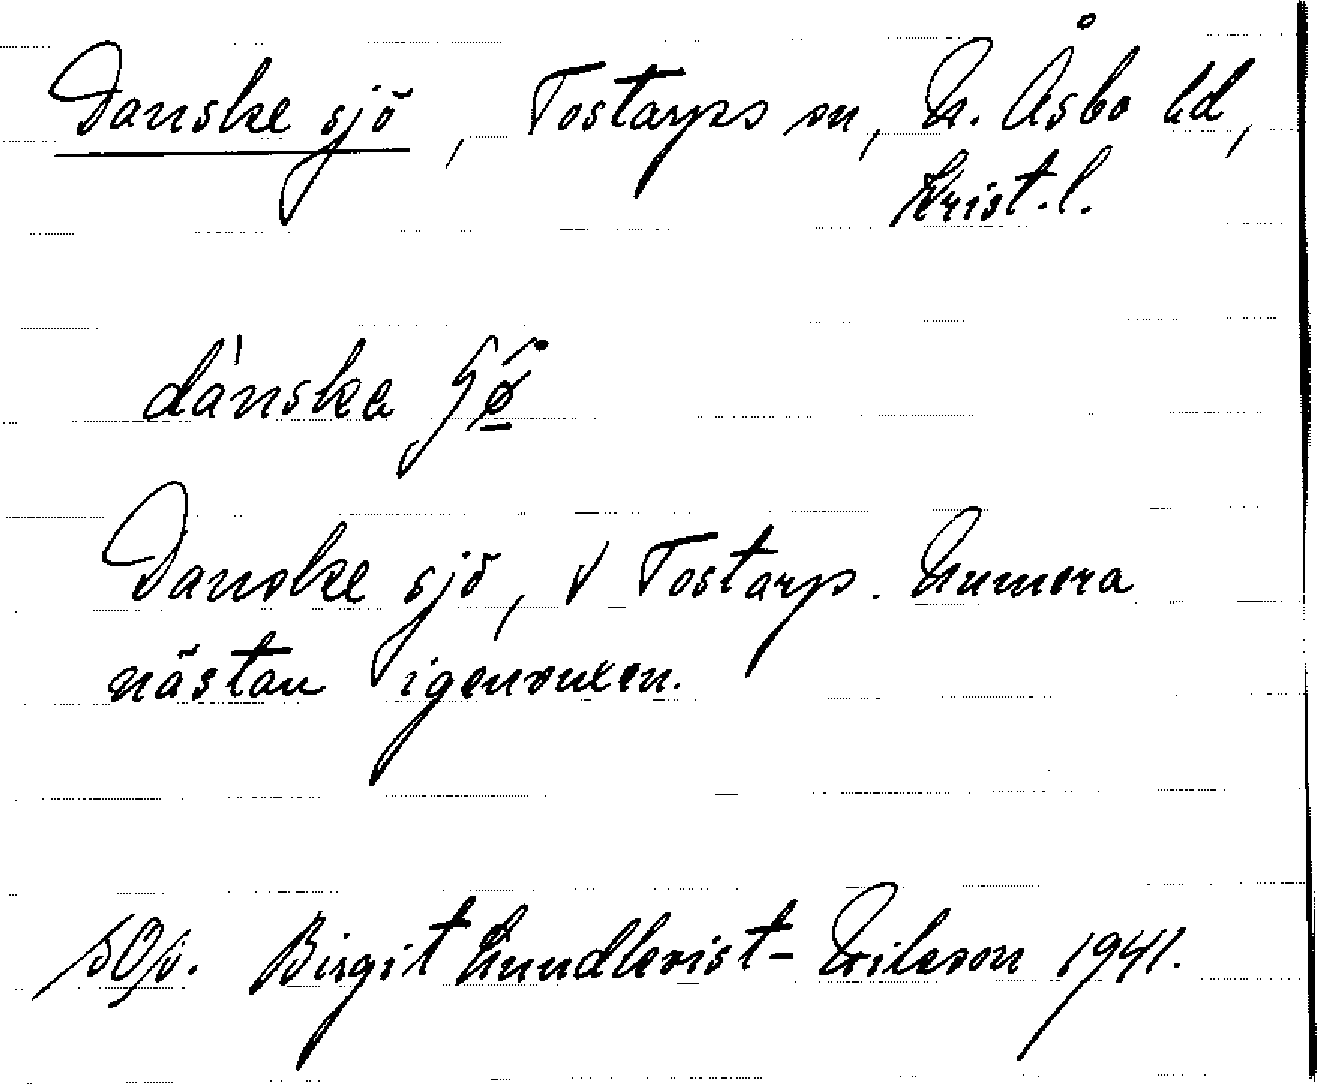 Danske sjö, Tostarps sn, N. Åsbo hd,
Krist. l.
dánska ʃǿ̱·
Danske sjö, V Tostarp. Numera
nästan igenvuxen.
Birgit Lundkvist-Eriksson 1941.